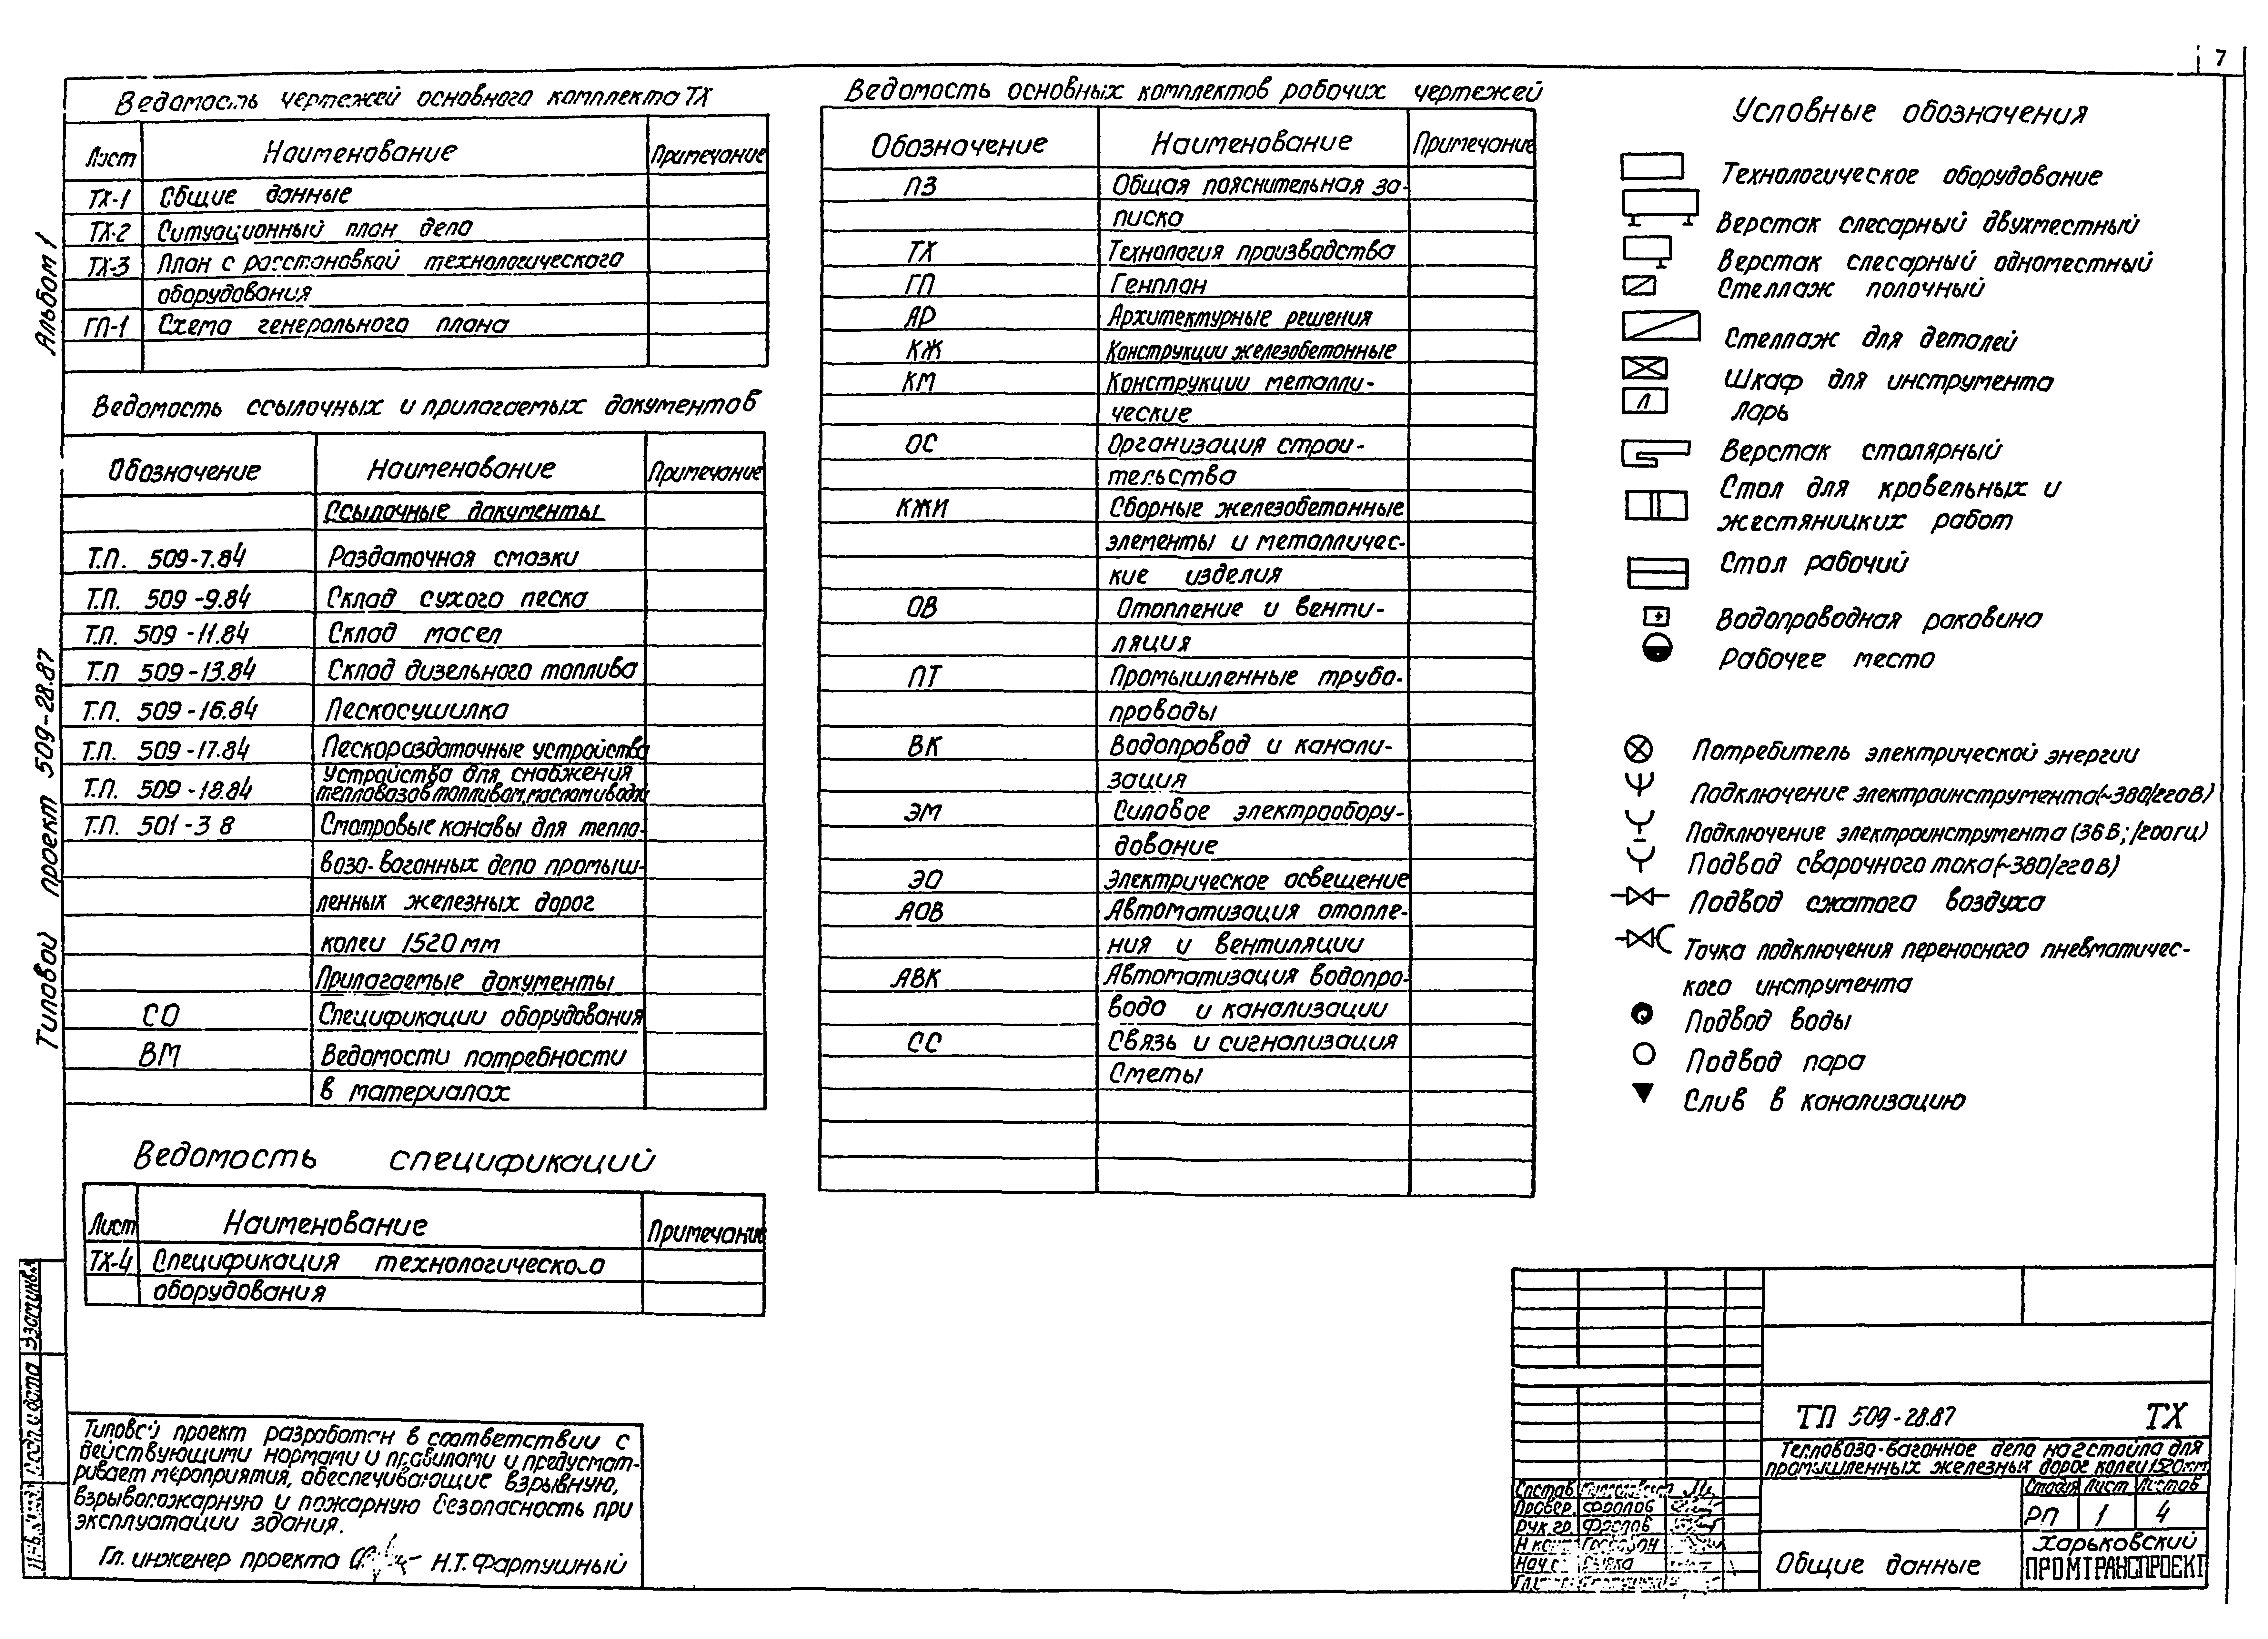 7
Альбом 1
Типовой проект 509-28.87
Ведомость чертежей основного комплекта ТХ
Лист Наименование Примечание
ТХ-1 Общие данные
ТХ-2 Ситуационный план депо
ТХ-3 План с расстановкой технологического
оборудования
ГП-1 Схема генерального плана
Ведомость ссылочных и прилагаемых документов
Обозначение Наименование Примечание
Ссылочные документы
Т.П. 509-7.84 Раздаточная смазки
Т.П. 509-9.84 Склад сухого песка
Т.П. 509-11.84 Склад масел
Т.П 509-13.84 Склад дизельного топлива
Т.П. 509-16.84 Пескосушилка
Т.П. 509-17.84 Пескораздаточные устройства
Т.П. 509-18.84 Устройства для снабжения
тепловозов топливом, маслом и водой
Т.П. 501-38 Смотровые канавы для тепло-
возо-вагонных депо промыш-
ленных железных дорог
колеи 1520 мм
Прилагаемые документы
СО Спецификации оборудования
ВМ Ведомости потребности
в материалах
Ведомость спецификаций
Лист Наименование Примечание
ТХ-4 Спецификация технологического
оборудования
Типовой проект разработан в соответствии с
действующими нормами и правилами и предусмат-
ривает мероприятия, обеспечивающие взрывную,
взрывопожарную и пожарную безопасность при
эксплуатации здания.
Гл. инженер проекта Н.Т. Фартушный
Ведомость основных комплектов рабочих чертежей
Обозначение Наименование Примечание
ПЗ Общая пояснительная за-
писка
ТХ Технология производства
ГП Генплан
АР Архитектурные решения
КЖ Конструкции железобетонные
КМ Конструкции металли-
ческие
ОС Организация строи-
тельства
КЖИ Сборные железобетонные
элементы и металличес-
кие изделия
ОВ Отопление и венти-
ляция
ПТ Промышленные трубо-
проводы
ВК Водопровод и канали-
зация
ЭМ Силовое электрообору-
дование
ЭО Электрическое освещение
АОВ Автоматизация отопле-
ния и вентиляции
АВК Автоматизация водопро-
вода и канализации
СС Связь и сигнализация
Сметы
Условные обозначения
Технологическое оборудование
Верстак слесарный двухместный
Верстак слесарный одноместный
Стеллаж полочный
Стеллаж для деталей
Шкаф для инструмента
Л Ларь
Верстак столярный
Стол для кровельных и
жестяницких работ
Стол рабочий
Водопроводная раковина
Рабочее место
Потребитель электрической энергии
Подключение электроинструмента (~380/220 В)
Подключение электроинструмента (36 В; /200 гц)
Подвод сварочного тока (~380/220 В)
Подвод сжатого воздуха
Точка подключения переносного пневматичес-
кого инструмента
Подвод воды
Подвод пара
Слив в канализацию
ТП 509-28.87 ТХ
Тепловозо-вагонное депо на 2 стойла для
промышленных железных дорог колеи 1520 мм
Состав.
Провер. Фролов
Рук. гр. Фролов
Стадия Лист Листов
РП 1 4
Общие данные
Харьковский
ПРОМТРАНСПРОЕКТ
Подп. и дата